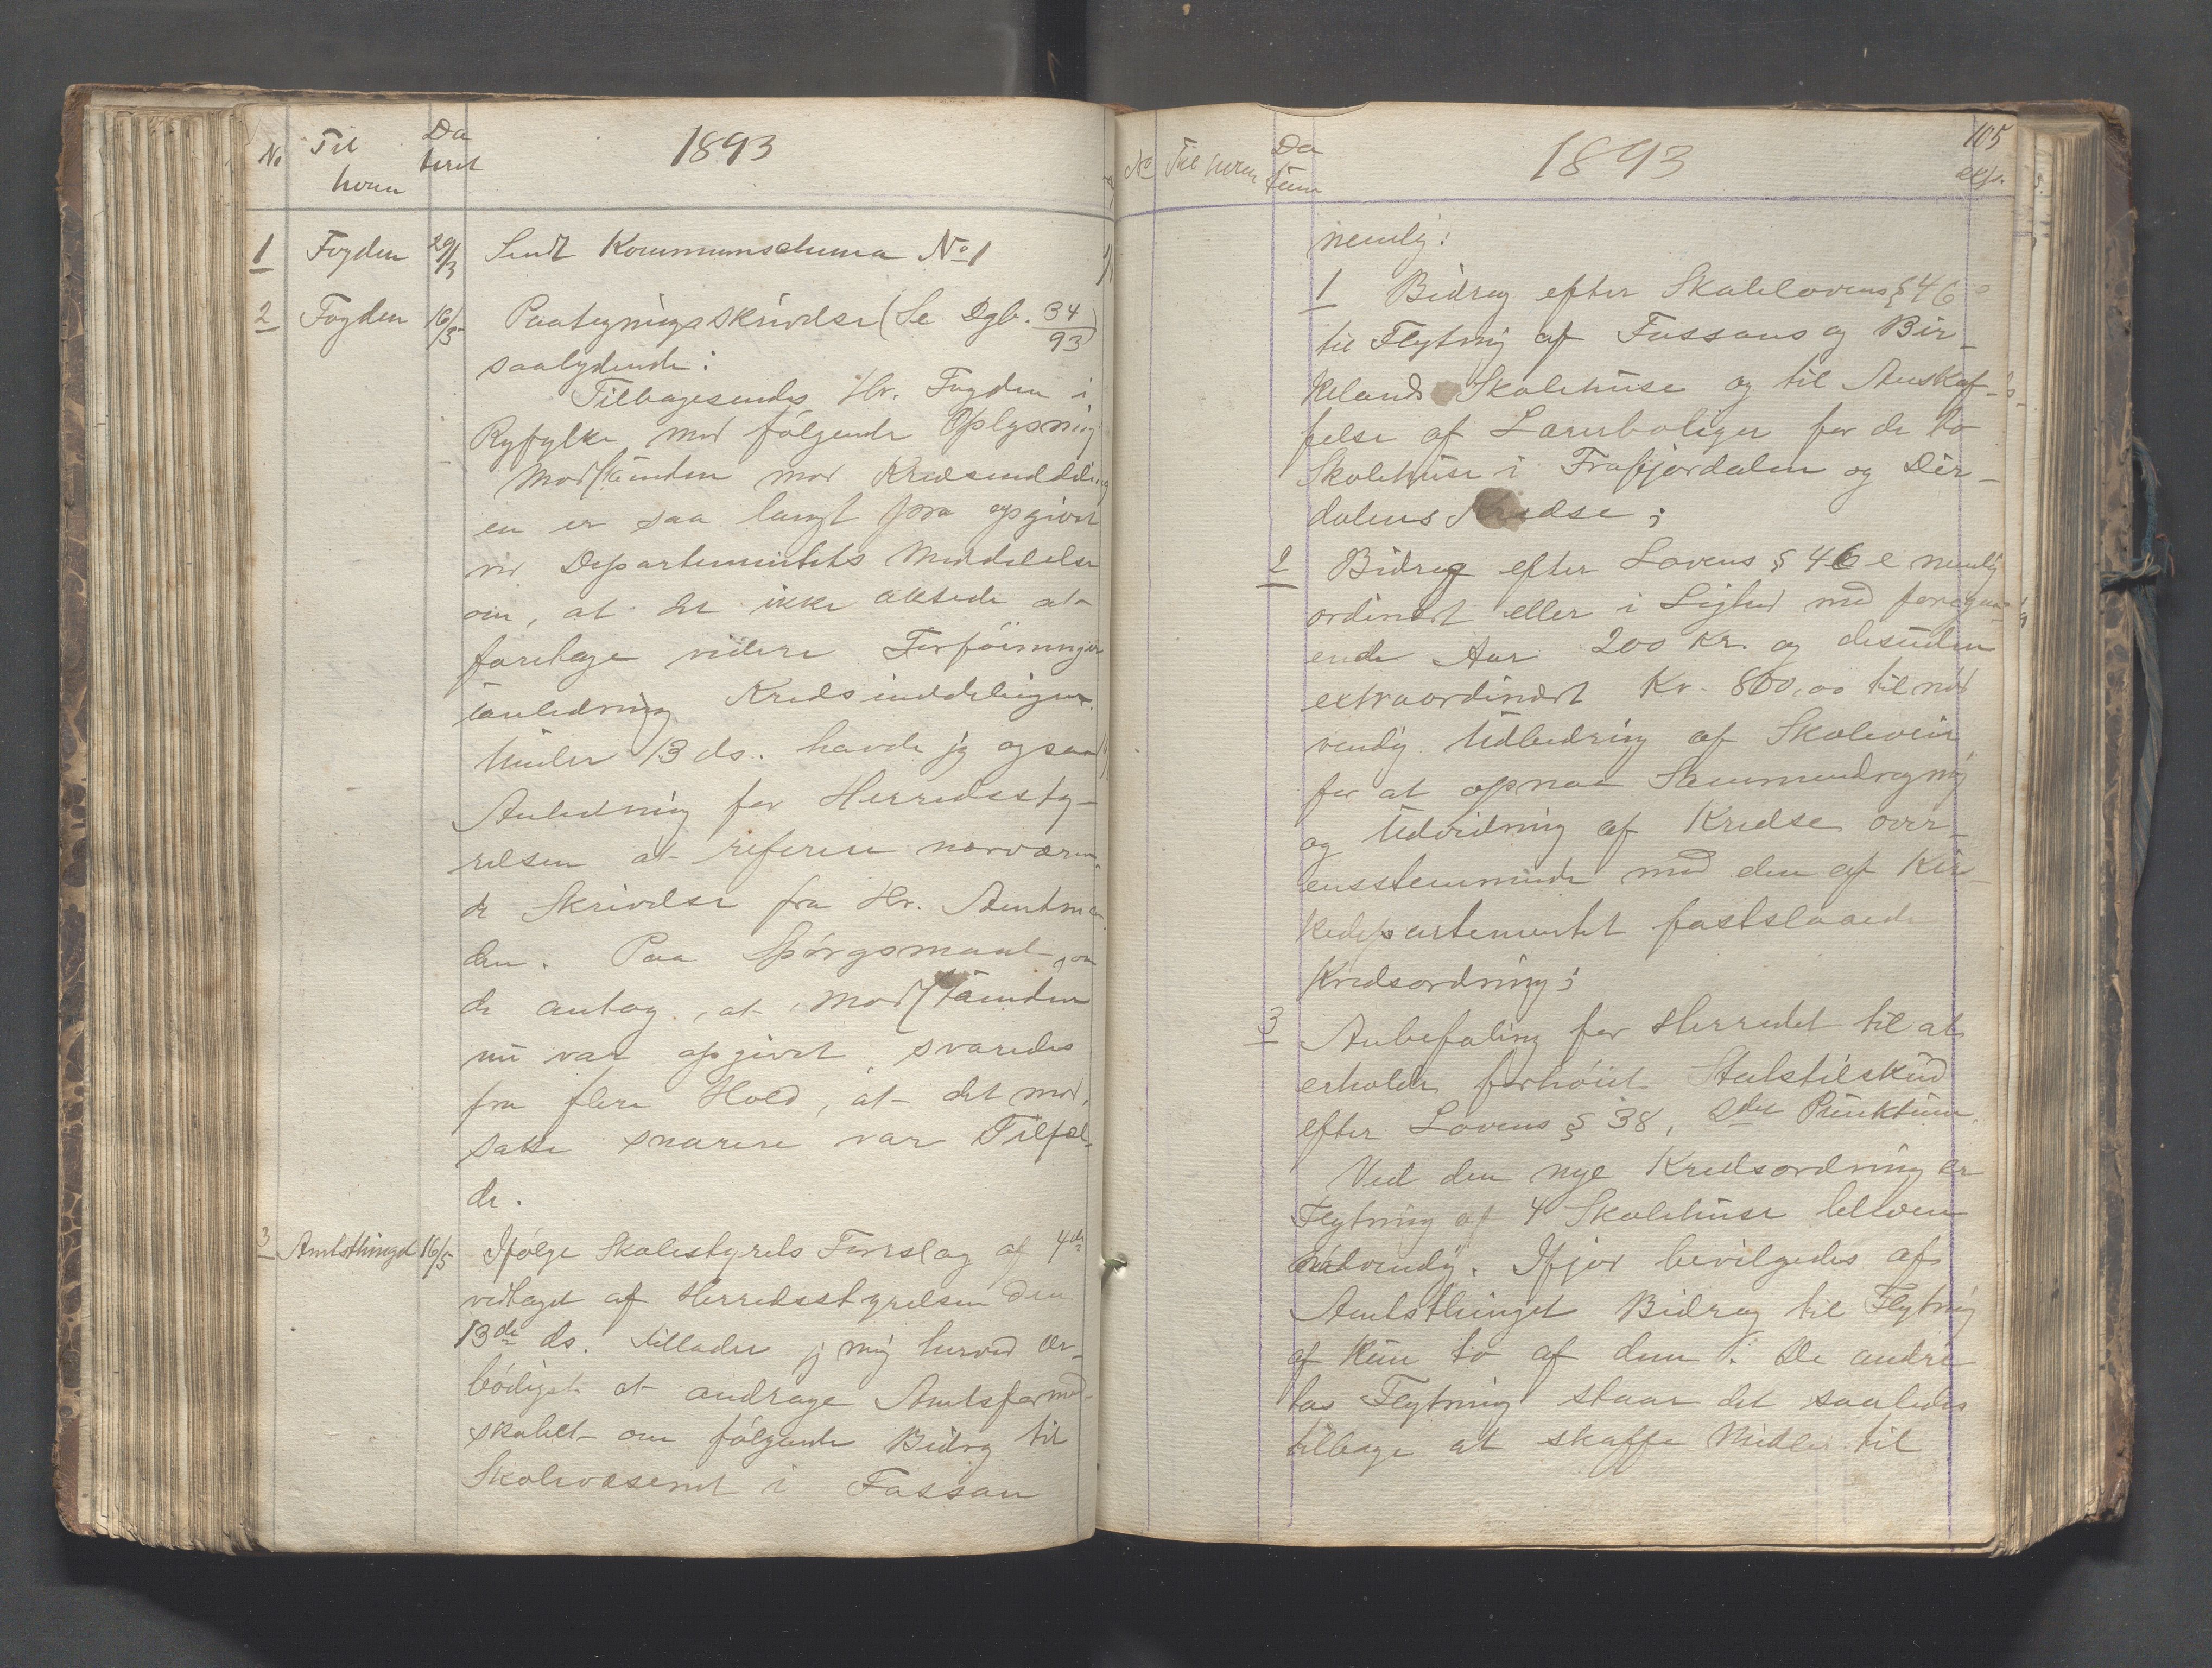 No Til hvem Da teret 1893
1 Fogden 29/3 Sendt Kommunschema No 1
2 Fogden 16/5 Paategningsskrivelse (Se Dgb. 34/93)
saalydende:
Tilbagesendes Hr. Fogden i
Ryfylke med følgende Oplysning
Modstanden mod Kredsinddeling
en er saa langt fra opgivet
ved Departementets Meddelelse
om, at det ikke aktede at
foretage videre Forføininger
ianledning Kredsinddelingen.
Under 13 ds. havde jeg ogsaa
Anledning for Herredssty-
relsen at referere nærværen-
de Skrivelse fra Hr. Amtman
den. Paa Spørgsmaal, om
de antog, at Modstanden
nu var opgivet, svaredes
fra flere Hold, at det mod-
satte snarere var Tilfæl-
de.
3 Amtsthinget 16/5 Ifølge Skolestyrets Forslag af 4de
vedtaget af Herredsstyrelsen den
13de ds. tillader jeg mig herved ær-
bødigst at andrage Amtsformand-
skabet om følgende Bidrag til
Skolevæsenet i Fossan
No Til hvem Da tum 1893 105
exp.
nemlig:
1 Bidrag efter Skolelovens § 46
til Flytning af Fossans og Bir-
kelands Skolehuse og til Anskaf-
felse af Lærerboliger for de to
Skolehuse i Frafjordalen og Dir-
dalens Kredse;
2 Bidrag efter Lovens § 46 e nemlig
ordinært eller i Lighed med foregaa-
ende Aar 200 Kr. og desuden
extraordinært Kr. 800,00 til nød
vendig Udbedring af Skoleveie
for at opnaa Sammendragning
og Udvidning af Kredse over-
ensstemmende med den af Kir-
kedepartementet fastslaaede
Kredsordning;
3 Anbefaling for Herredet til at
erholde forhøiet Statstilskud
efter Lovens § 38, 2det Punktum.
Ved den nye Kredsordning er
Flytning af 4 Skolehuse bleven
nødvendig. Ifjor bevilgedes af
Amtsthinget Bidrag til Flytning
af kun to af dem. De andre
tos Flytning staar det saaledes
tilbage at skaffe Midler til